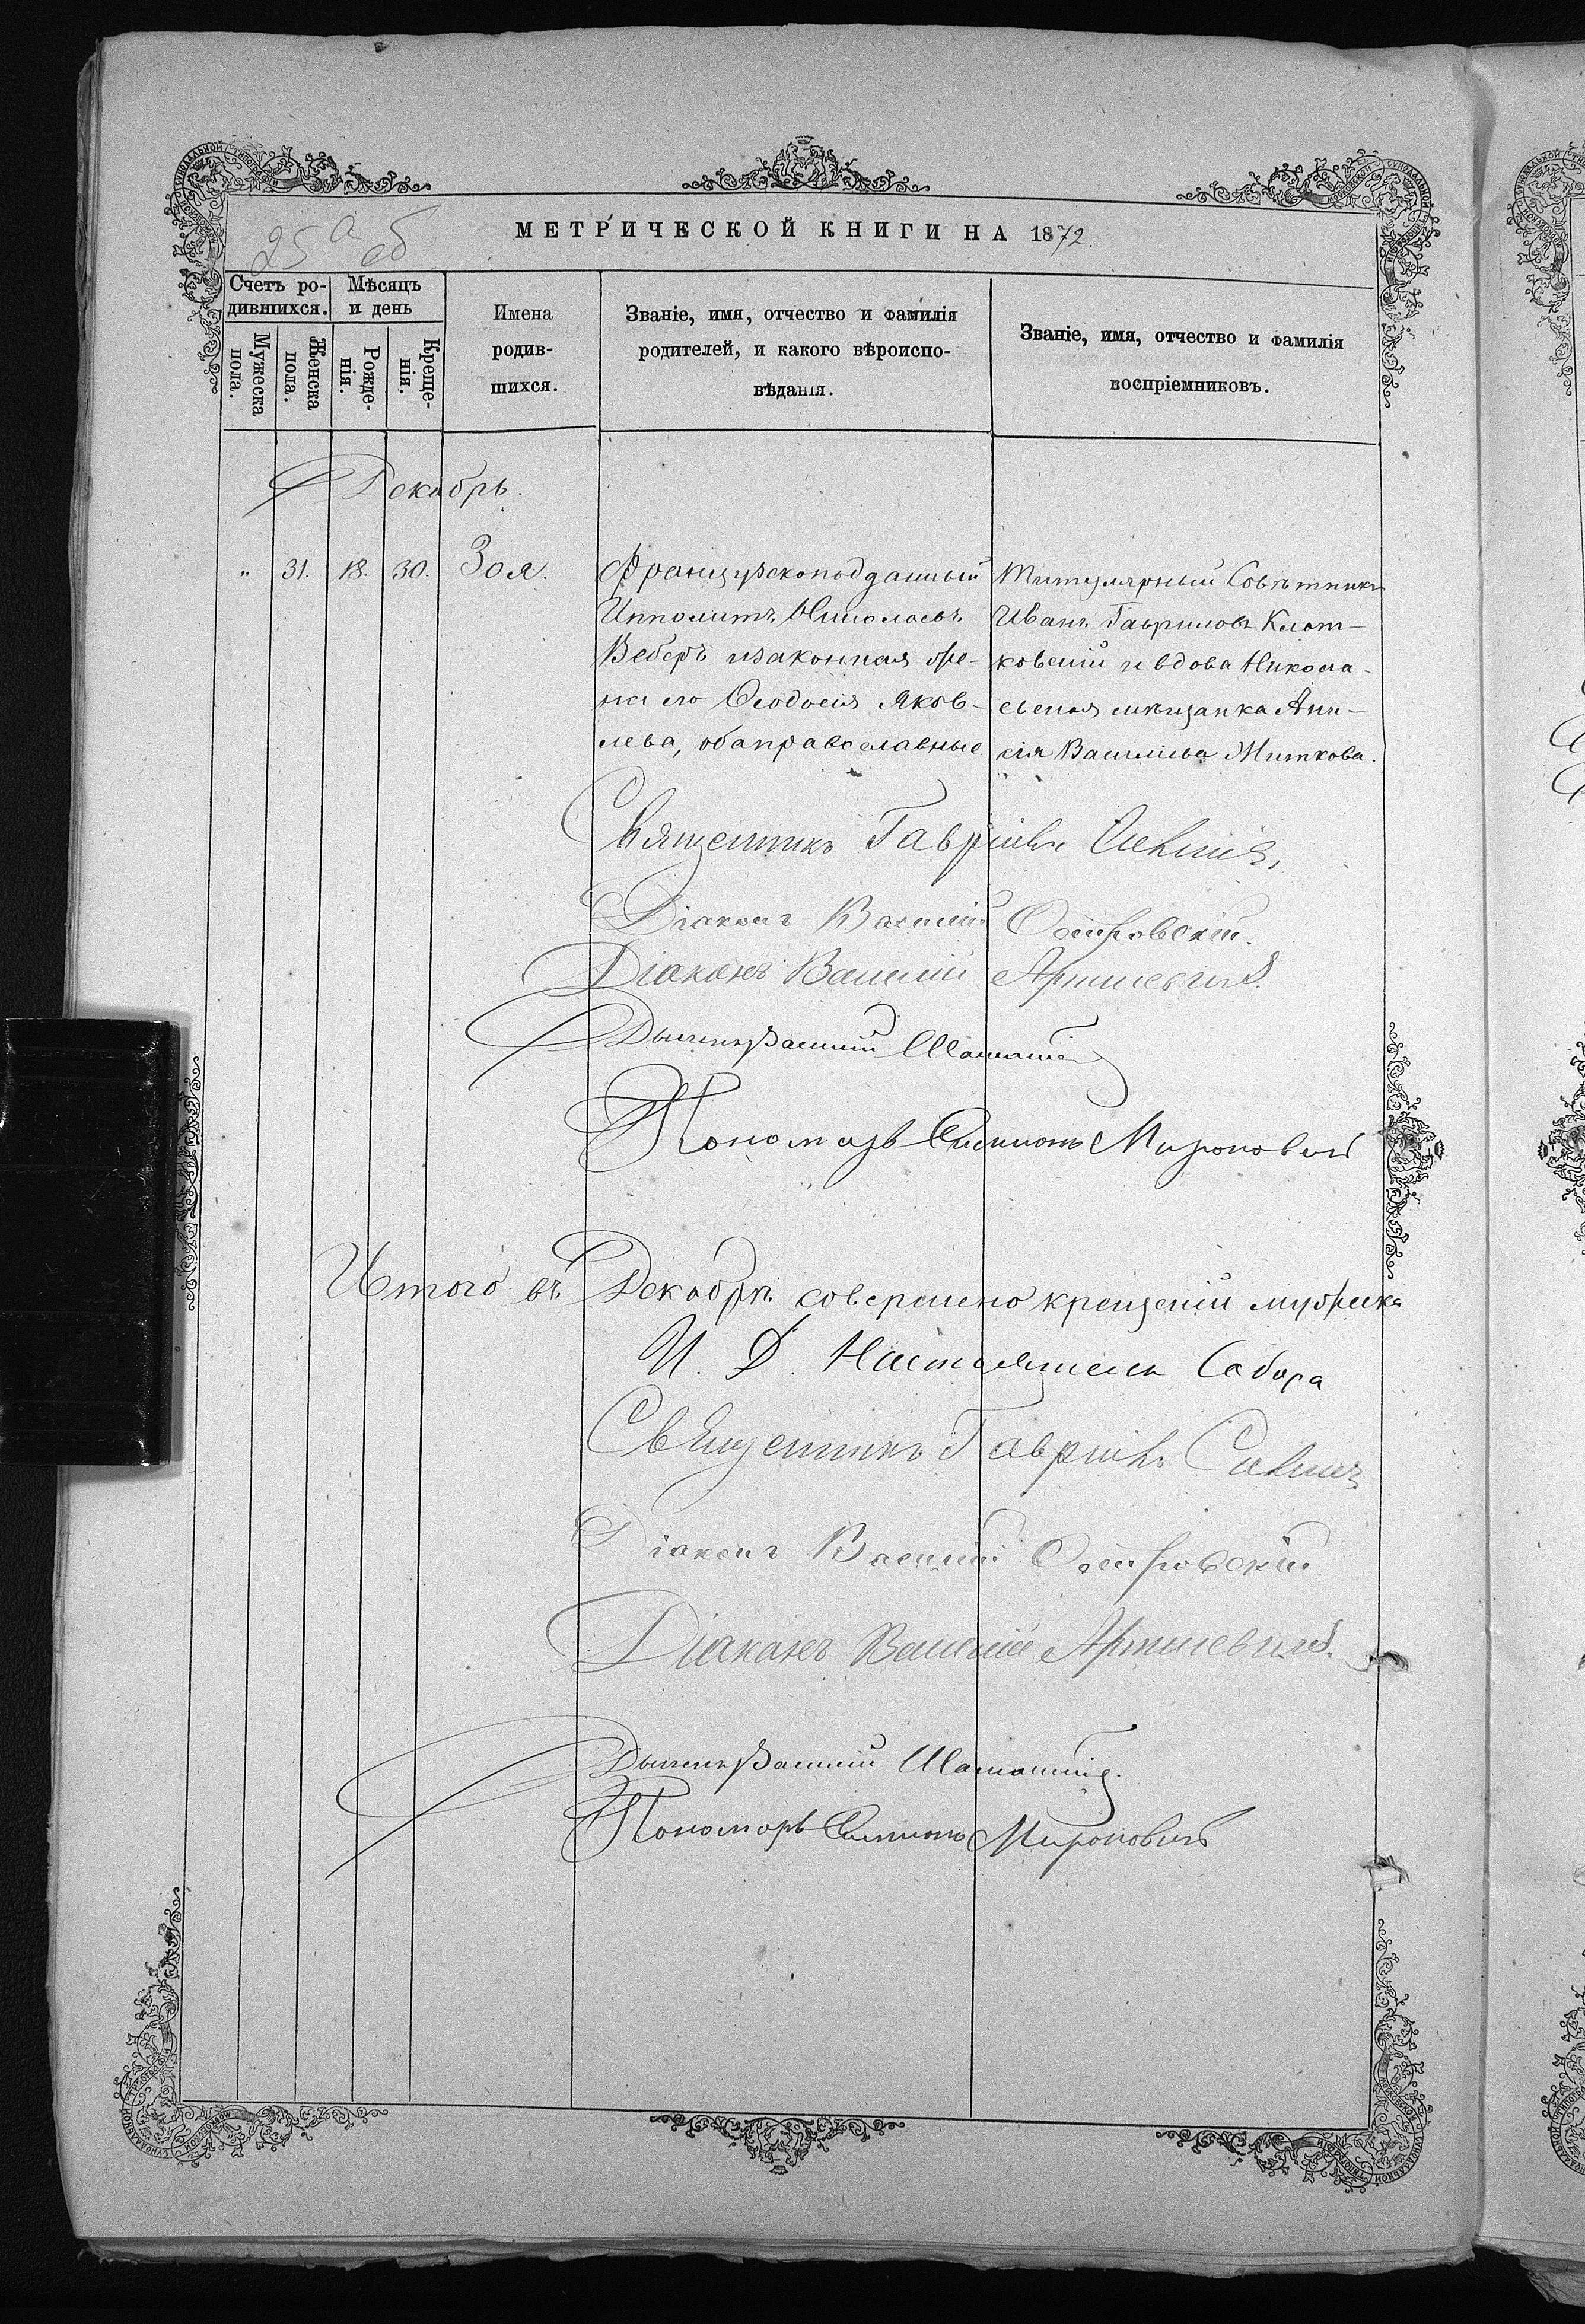 25 а об
МЕТРИЧЕСКОЙ КНИГИ НА 1872.
Счетъ ро-
дившихся.
Мѣсяцъ
и день
Мужеска
пола.
Женска
пола.
Рожде-
нія.
Креще-
нія.
Имена
родив-
шихся.
Званіе, имя, отчество и фамилія
родителей, и какого вѣроиспо-
вѣданія.
Званіе, имя, отчество и фамилія
воспріемниковъ.
Декабрь.
" 31. 18. 30. Зоя.
Французскоподданный
Ипполитъ Николаевъ
Веберъ изаконная же-
на его Ѳеодосія Яков-
лева, оба православные
Титулярный Совѣтникъ
Иванъ Гавриловъ Клот-
ковскій и вдова Никола-
евская мѣщанка Анн-
сія Васильева Миткова.
Священникъ Гавріилъ
Діаконъ Василій Островскій.
Діаконъ Василій
Дьячекъ Василій
Пономарь Симеонъ Мироновичъ
Итого въ Декабрѣ совершено крещеній мужеска
И. Д. Настоятеля Собора
Священникъ Гавріилъ
Діаконъ Василій Островскій.
Діаконъ Василій
Дьячекъ Василій
Пономарь Симеонъ Мироновичъ